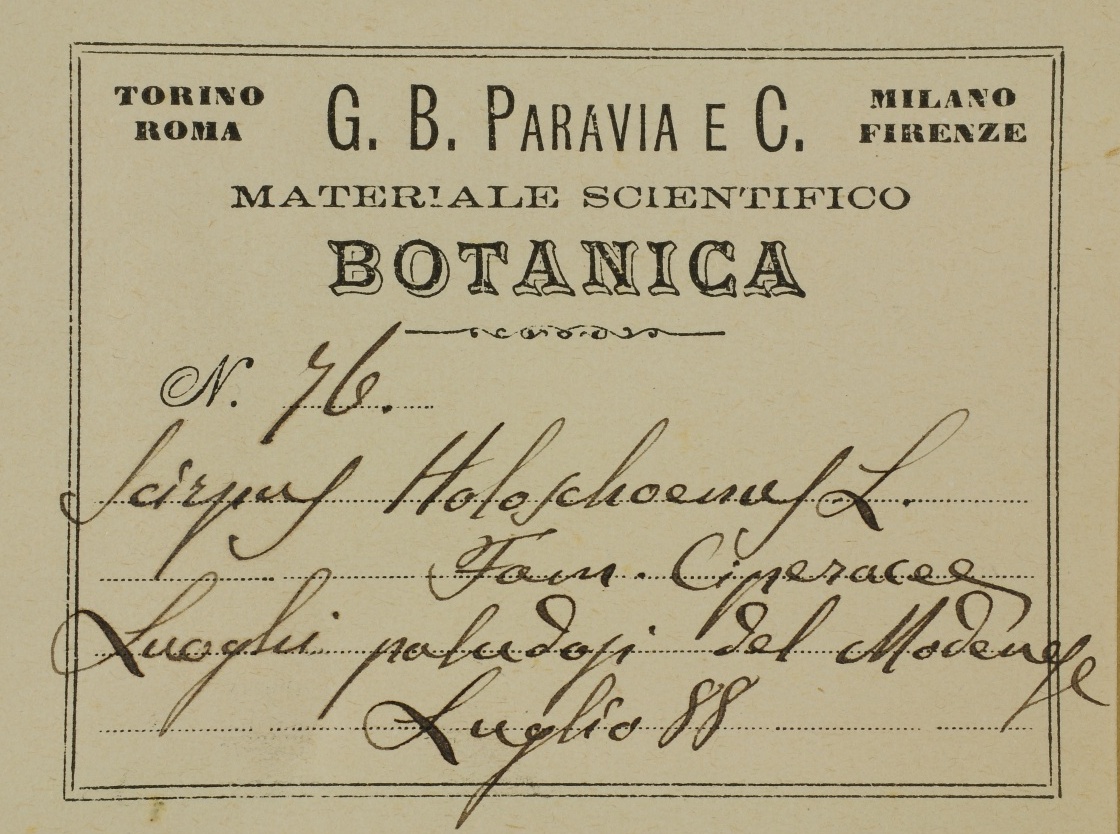 TORINO ROMA G. B. PARAVIA E C. MILANO FIRENZE
MATERIALE SCIENTIFICO
BOTANICA
N. 76.
Scirpus Holoschoenus L.
Fam. Ciperacee
Luoghi paludosi del Modenese
Luglio 88